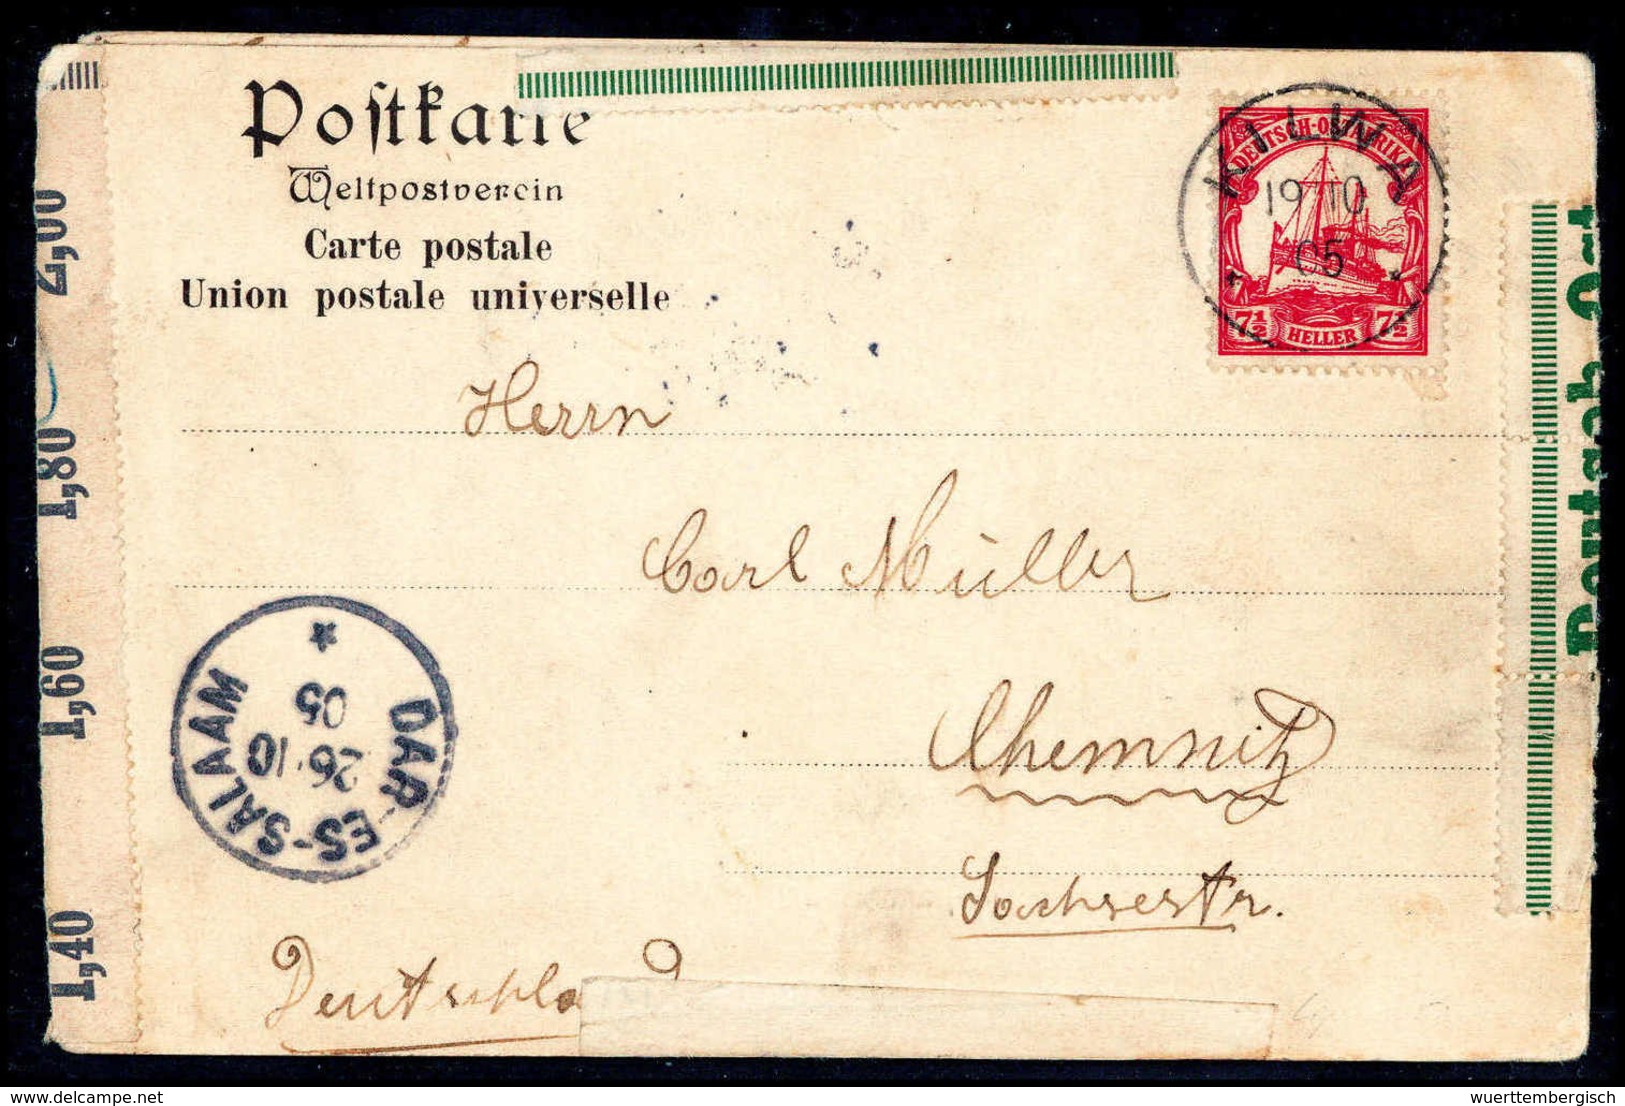 Postkarte
Weltpostverein
Carte postale
Union postale universelle
KILWA
19 10
05
DEUTSCH-OSTAFRIKA
7½ HELLER 7½
Herrn
Carl Müller
Chemnitz
Sachsestr.
Deutschla
DAR-ES-SALAAM
26.10
05
2,00
1,80
1,60
1,40
wuerttembergisch